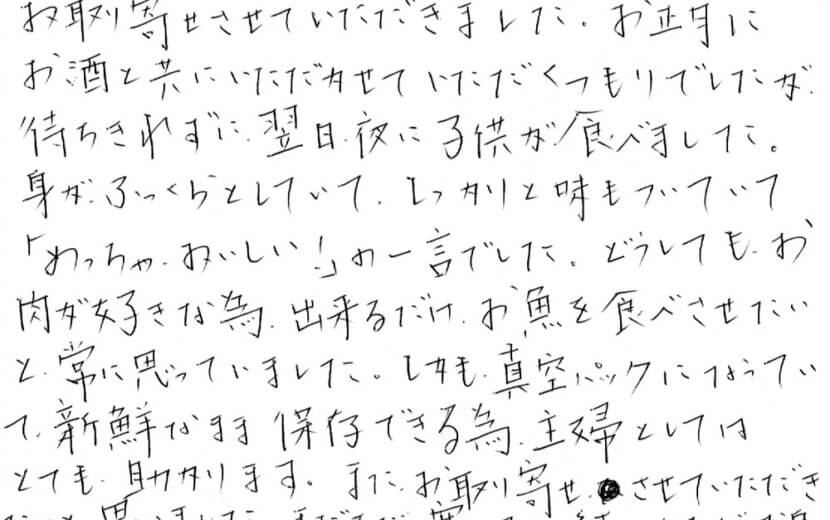 お取り寄せさせていただきました。お正月に
お酒と共にいただかせていただくつもりでしたが、
待ちきれずに、翌日、夜に子供が食べました。
身が、ふっくらとしていて、しっかりと味もついていて
「めっちゃ、おいしい!」の一言でした。どうしても、お
肉が好きな為、出来るだけ、お魚を食べさせたい
と、常に思っていました。しかも、真空パックになってい
て、新鮮なまま保存できる為、主婦としては
とても、助かります。また、お取り寄せ、させていただき
たいと思いました。